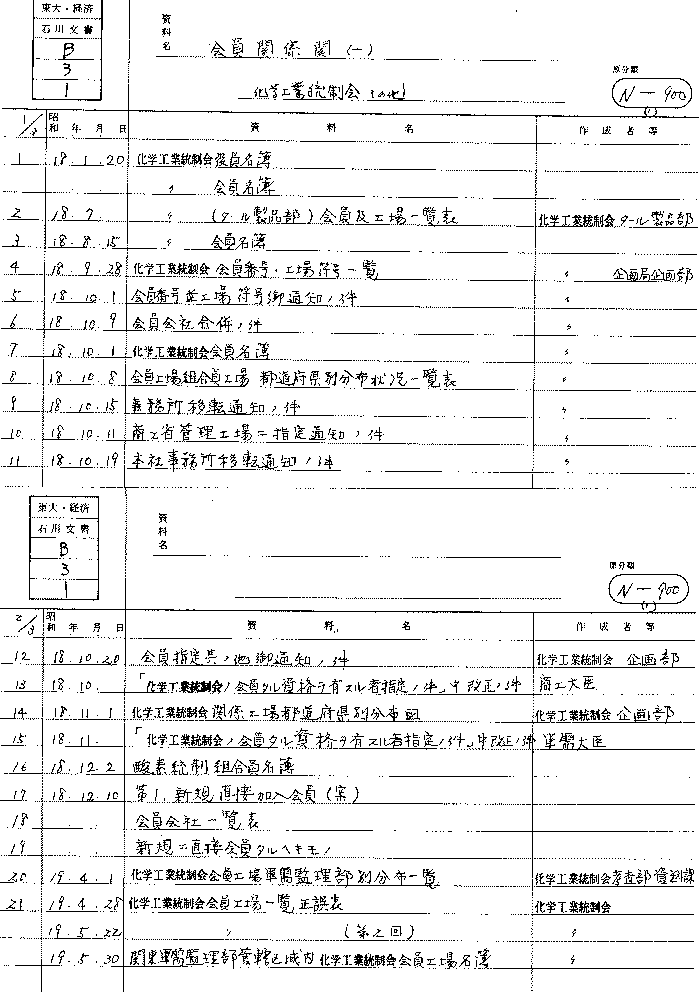 東大・経済
石川文書
B
3
1
資料名
会員関係関(一)
化学工業統制会 その他
原分類
N-900
(1)
1/3 昭和 年 月 日 資 料 名 作成者等
1 18.1.20 化学工業統制会役員名簿
〃 会員名簿
2 18.7 〃 (タール製品部)会員及工場一覧表 化学工業統制会 タール製品部
3 18.8.15 〃 会員名簿
4 18.9.28 化学工業統制会 会員番号・工場符号一覧 〃 企画局企画部
5 18.10.1 会員番号並工場符号御通知ノ件 〃
6 18.10.9 会員会社合併ノ件 〃
7 18.10.1 化学工業統制会会員名簿 〃
8 18.10.8 会員工場組合員工場 都道府県別分布状況一覧表 〃
9 18.10.15 義務所移転通知ノ件 〃
10 18.10.11 商工省管理工場ニ指定通知ノ件 〃
11 18.10.19 本社事務所移転通知ノ件 〃
東大・経済
石川文書
B
3
1
資料名
原分類
N-900
(1)
2/3 昭和 年 月 日 資 料 名 作成者等
12 18.10.20 会員指定其ノ他御通知ノ件 化学工業統制会 企画部
13 18.10. 「化学工業統制会ノ会員タル資格ヲ有スル者指定ノ件」中改正ノ件 商工大臣
14 18.11.1 化学工業統制会関係工場都道府県別分布図 化学工業統制会 企画部
15 18.11. 「化学工業統制会ノ会員タル資格ヲ有スル者指定ノ件」中改正ノ件 軍需大臣
16 18.12.2 酸素統制組合員名簿
17 18.12.10 第1.新規直接加入会員(案)
18 会員会社一覧表
19 新規ニ直接会員タルヘキモノ
20 19.4.1 化学工業統制会会員工場軍需監理部別分布一覧 化学工業統制会考査部
21 19.4.28 化学工業統制会会員工場一覧正誤表 化学工業統制会
19.5.22 〃 (第2回) 〃
19.5.30 関東軍需監理部管轄区域内化学工業統制会会員工場名簿 〃